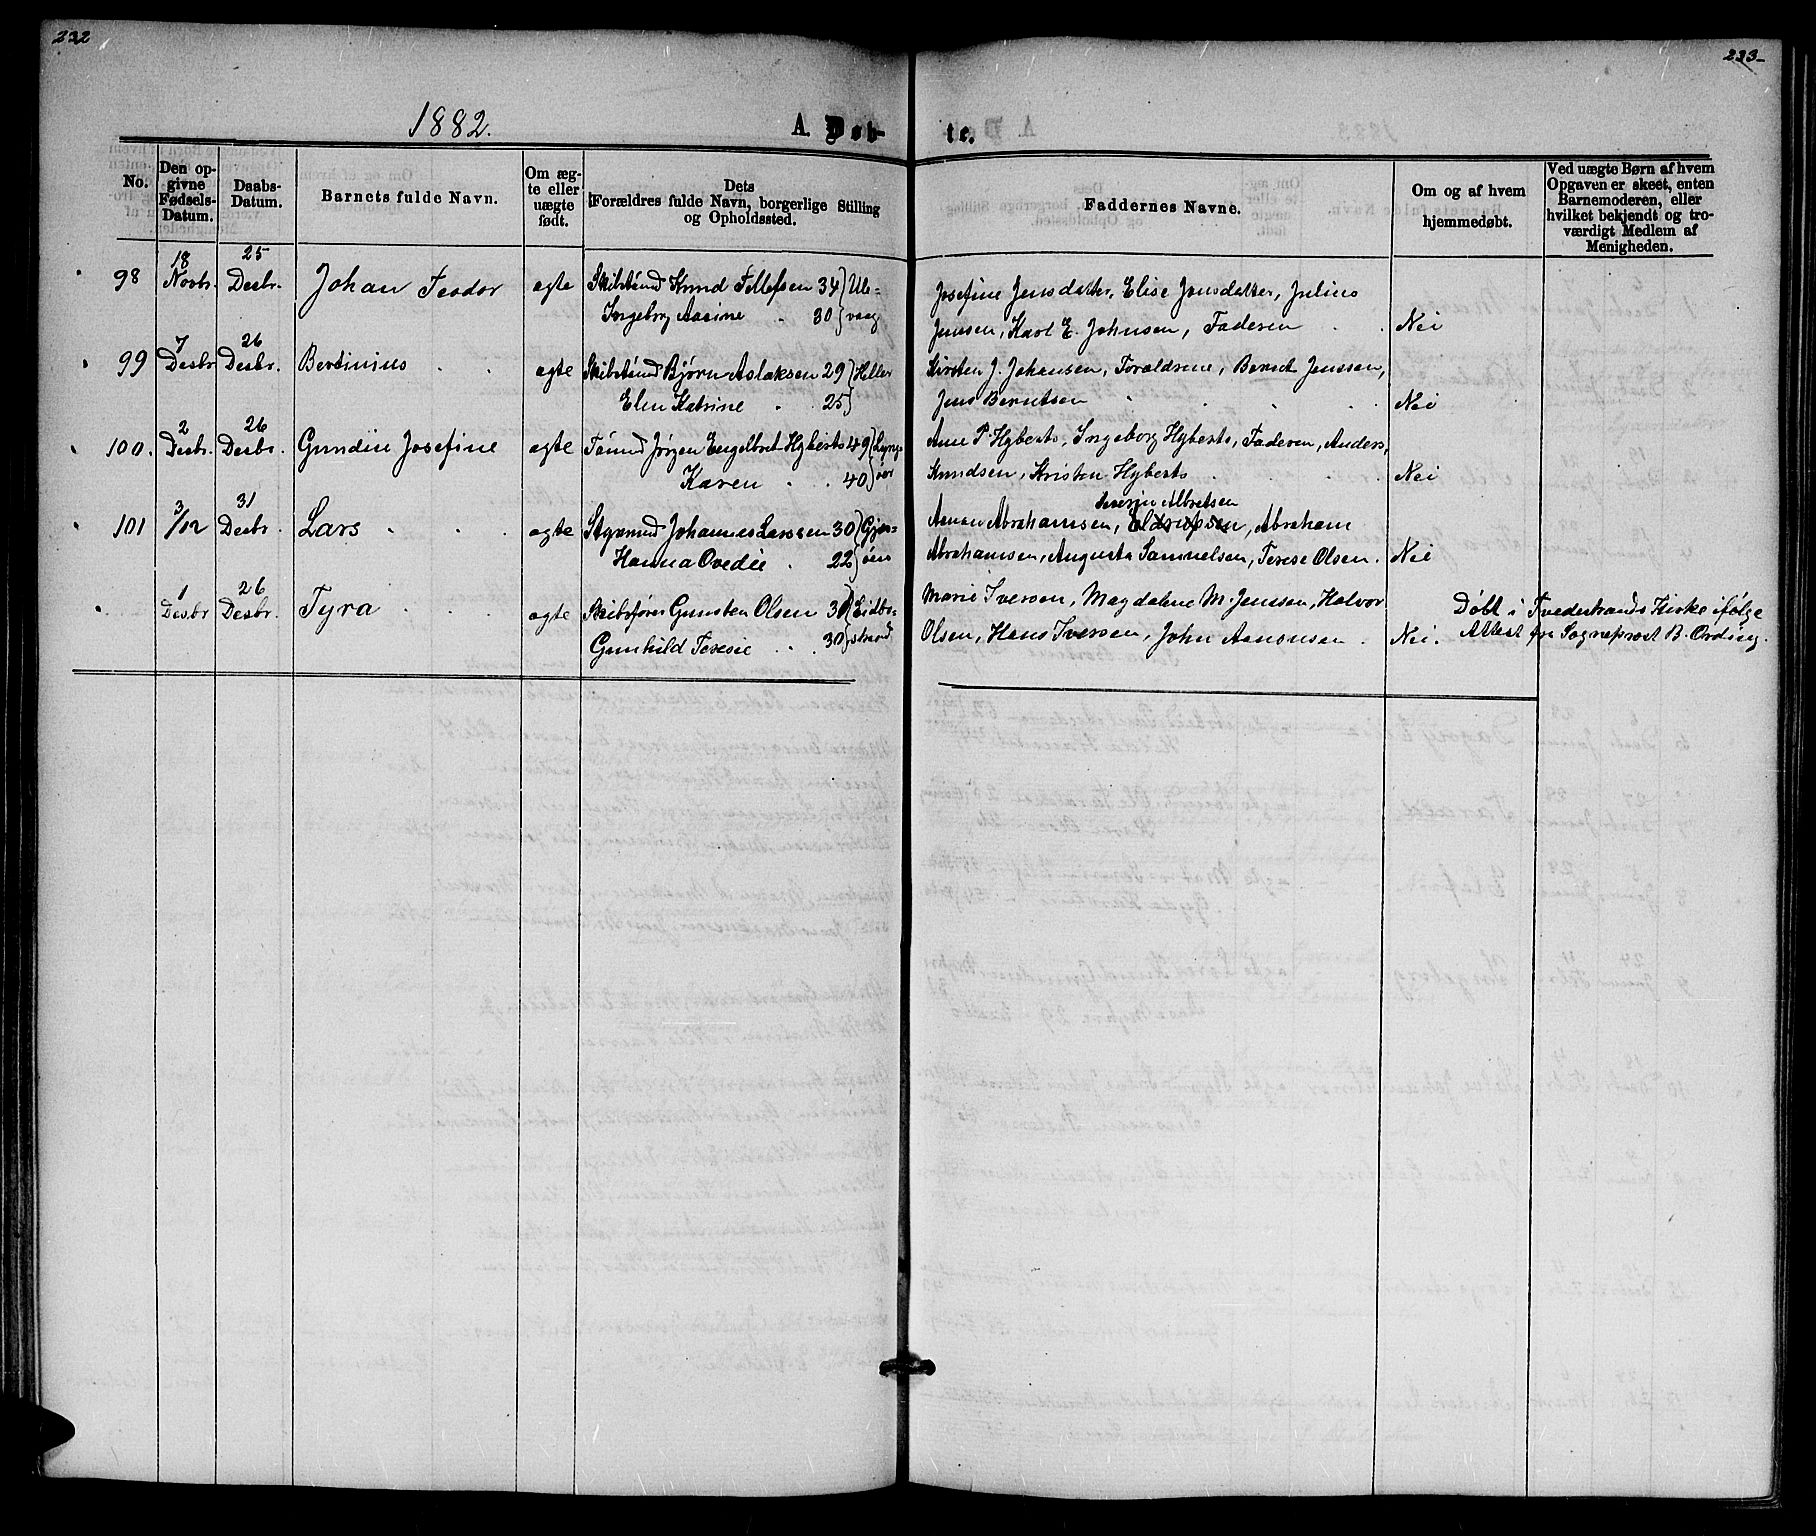 232
233-
1882.
A. Døb-
te.
No.
Den op-
givne
Fødsels-
Datum.
Daabs-
Datum.
Barnets fulde Navn.
Om æg-
te eller
uægte
født.
Dets
Forældres fulde Navn, borgerlige Stilling
og Opholdssted.
Faddernes Navne.
Om og af hvem
hjemmedøbt.
Ved uægte Børn af hvem
Opgaven er skeet, enten
Barnemoderen, eller
hvilket bekjendt og tro-
værdigt Medlem af
Menigheden.
98 18 Novbr. 25 Desbr. Johan Teodor ægte Skibstømd Knud Tellefsen 34 Ule-
Ingeborg Aasine 30 vaag
Josefine Jensdatter, Elise Jensdatter, Julius
Jenssen, Karl E. Johnsen, Faderen Nei
99 7 Desbr 26 Desbr. Bertinius ægte Skibstømd Bjørn Aslaksen 29 Heller
Elen Katrine 25
Kirsten J. Johansen, Forældrene, Berent Jenssen,
Jens Berntsen Nei
100. 2 Desbr. 26 Desbr. Gundie Josefine ægte Tømmd Jørgen Engelbret Hyberts 49 Lyng-
Karen 40 øer
Ane P. Hyberts, Ingeborg Hyberts, Faderen, Anders
Knudsen, Kristen Hyberts Nei
101 3/12 31 Desbr. Lars ægte Styrmnd Johannes Larssen 30
Hanna Ovedie 22 øen
Severin Albretsen
Abrahamsen, Abraham
Abrahamsen, Augusta Samuelsen, Terese Olsen. Nei
1 Desbr 26 Desbr. Tyra ægte Skibsfører Gunsten Olsen 30 Lidbo-
Gunhild Teresie 30 strand
Marie Iversen, Magdalene M. Jenssen, Halvor
Olsen, Hans Iversen, John Aanonsen Nei.
Døbt i Tvedestrands Kirke ifølge
Attest fra Sogneprest B. Ording.